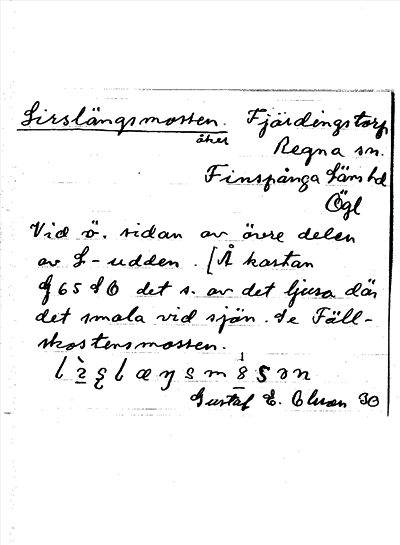 Lirslängsmossen. Fjärdingstorp
åker Regna sn.
Finspånga läns hd
Ögl
Vid ö. sidan av övre delen
av L-udden. [Å kartan
65 det s. av det ljusa där
det smala vid sjön. Se Fäll-
skostensmossen.
Gustaf E. 30